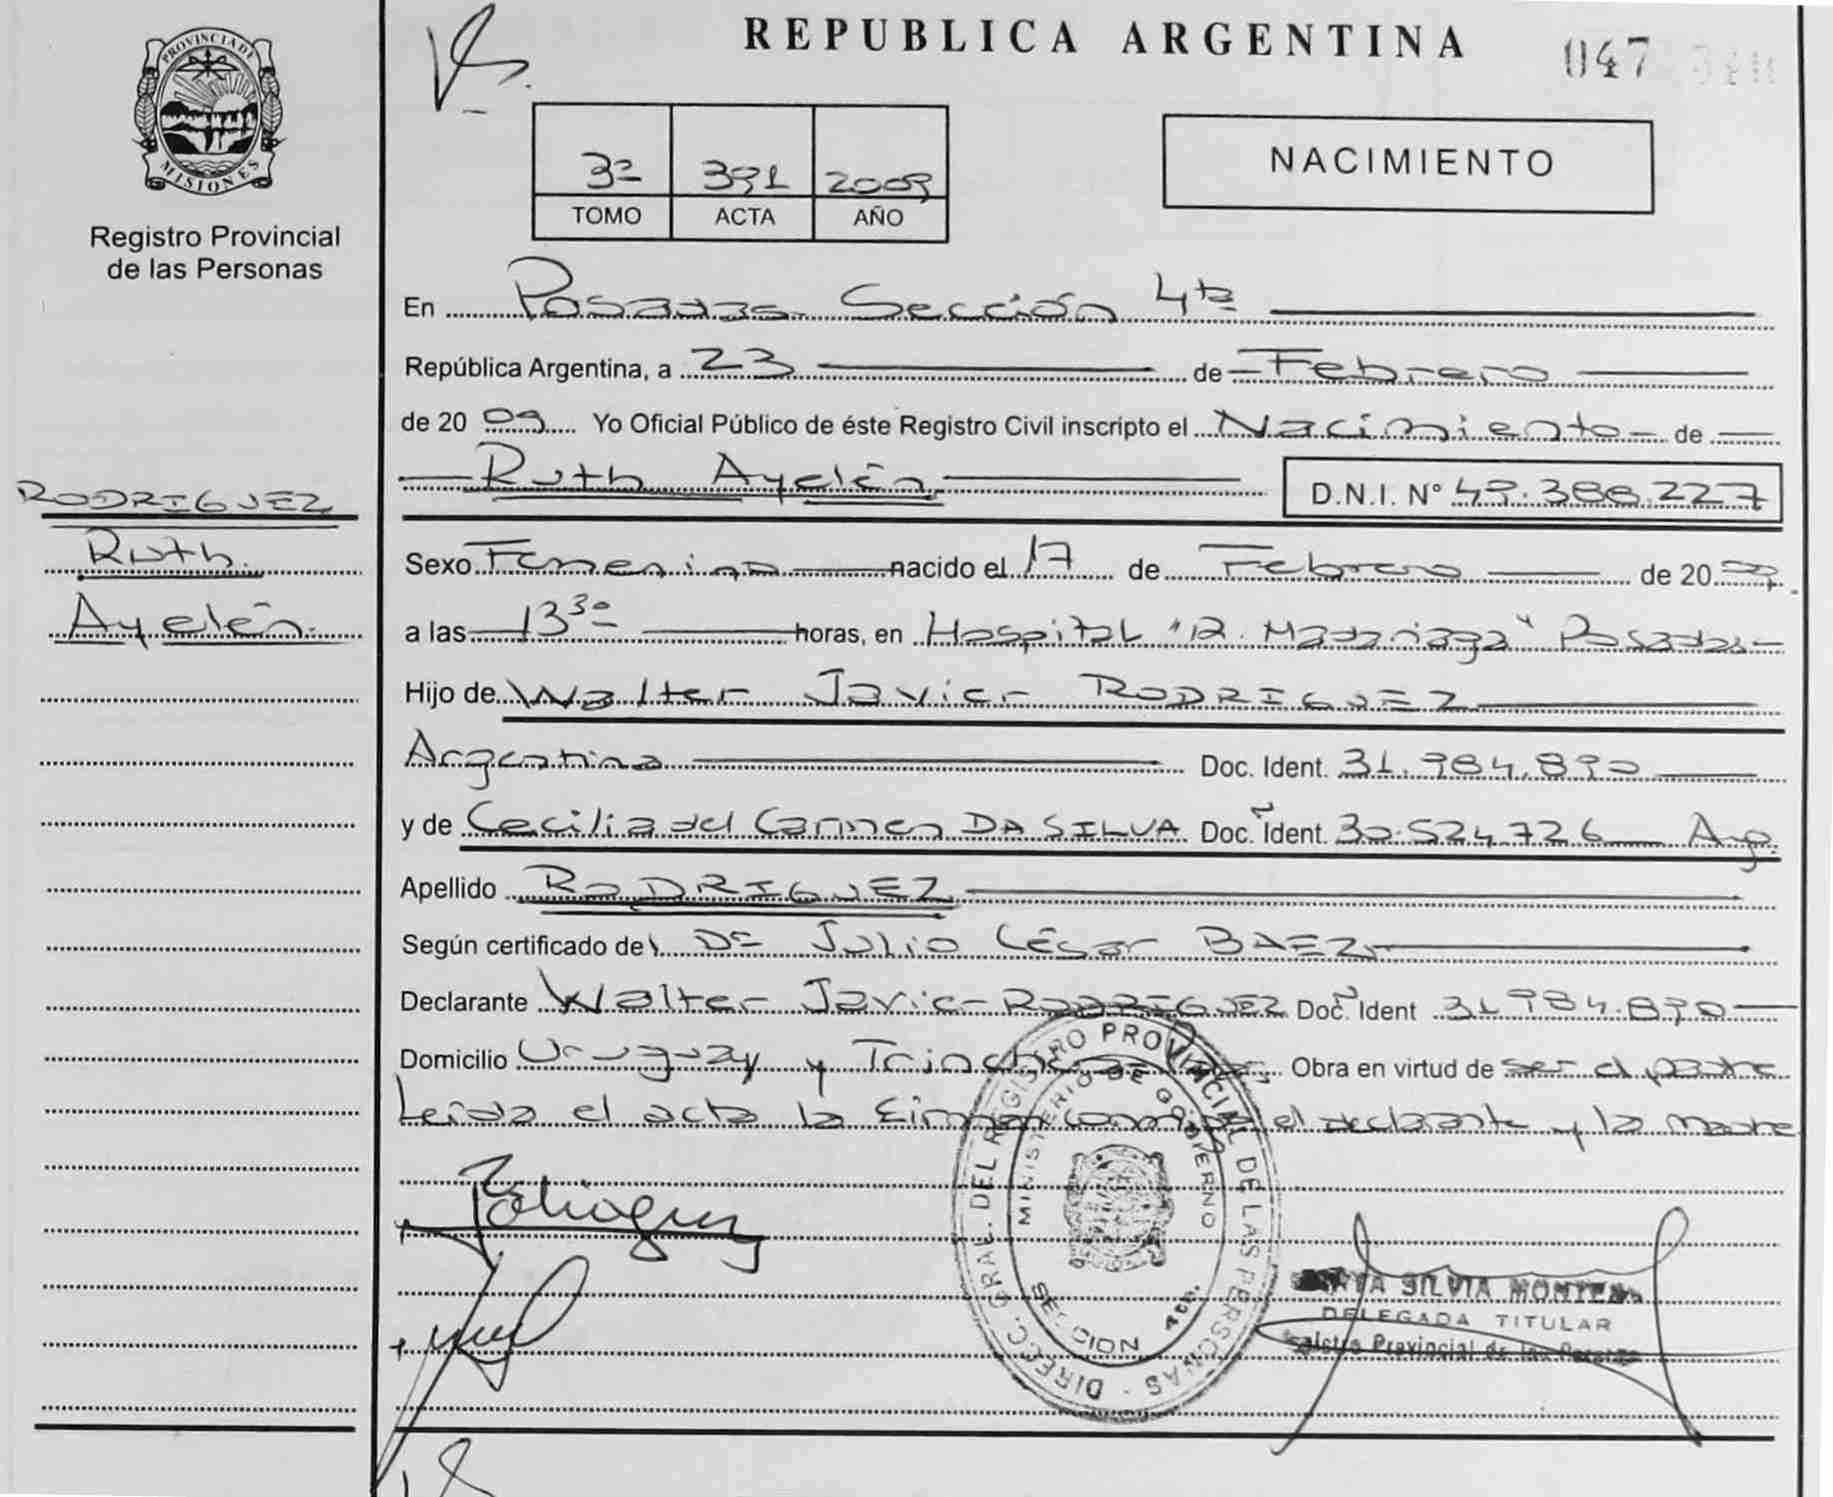 PROVINCIA DE
MISIONES
Registro Provincial
de las Personas
RODRIGUEZ
Ruth
Ayelén
REPUBLICA ARGENTINA
047
3º 391 2009
TOMO ACTA AÑO
NACIMIENTO
En Posadas Sección 4ta
República Argentina, a 23 de Febrero
de 2009 Yo Oficial Público de éste Registro Civil inscripto el Nacimiento de
Ruth Ayelén D.N.I. Nº 49.386.227
Sexo Femenino nacido el 17 de Febrero de 2009.
a las 13 30 horas, en Hospital "R. Madariaga" Posadas
Hijo de Walter Javier RODRIGUEZ
Argentina Doc. Ident. 31.984.890
y de Cecilia del Carmen DA SILVA Doc. Ident. 30.524.726 Arg.
Apellido RODRIGUEZ
Según certificado del Dr Julio César BAEZ
Declarante Walter Javier RODRIGUEZ Doc. Ident 31.984.890
Domicilio Uruguay y Obra en virtud de ser el padre
Leída el acta la Firman conmigo el declarante y la madre
DIRECC. GRAL. DEL REGISTRO PROVINCIAL DE LAS PERSONAS
MINISTERIO DE GOBIERNO
SECCION 4ta.
SILVIA
DELEGADA TITULAR
Provincial de las